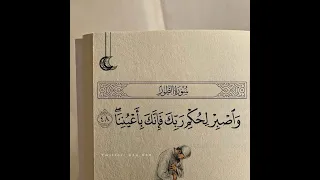 سُورَةُ الطُّورِ
وَاصْبِرْ لِحُكْمِ رَبِّكَ فَإِنَّكَ بِأَعْيُنِنَا ۖ ٤٨